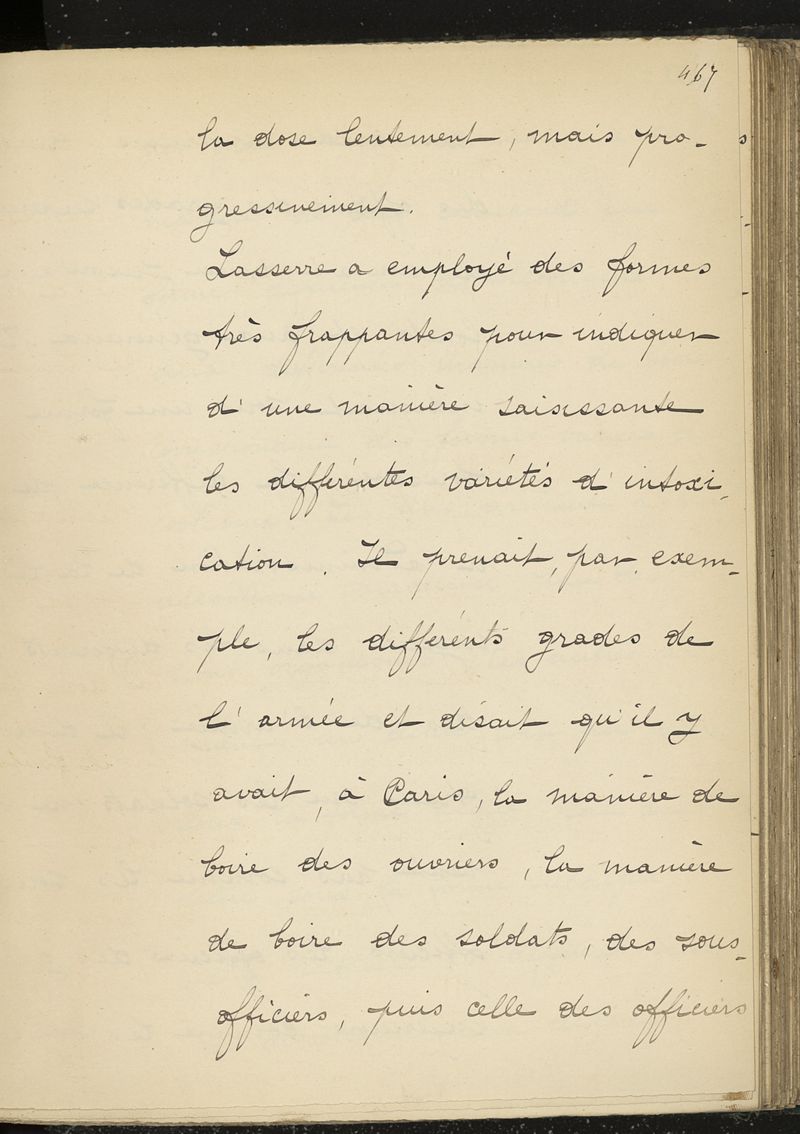 467
la dose lentement, mais pro-
gressivement.
Lasserre a employé des formes
très frappantes pour indiquer
d'une manière saisissante
les différentes variétés d'intoxi-
cation. Il prenait, par exem-
ple, les différents grades de
l'armée et disait qu'il y
avait, à Paris, la manière de
boire des ouvriers, la manière
de boire des soldats, des sous-
officiers, puis celle des officiers